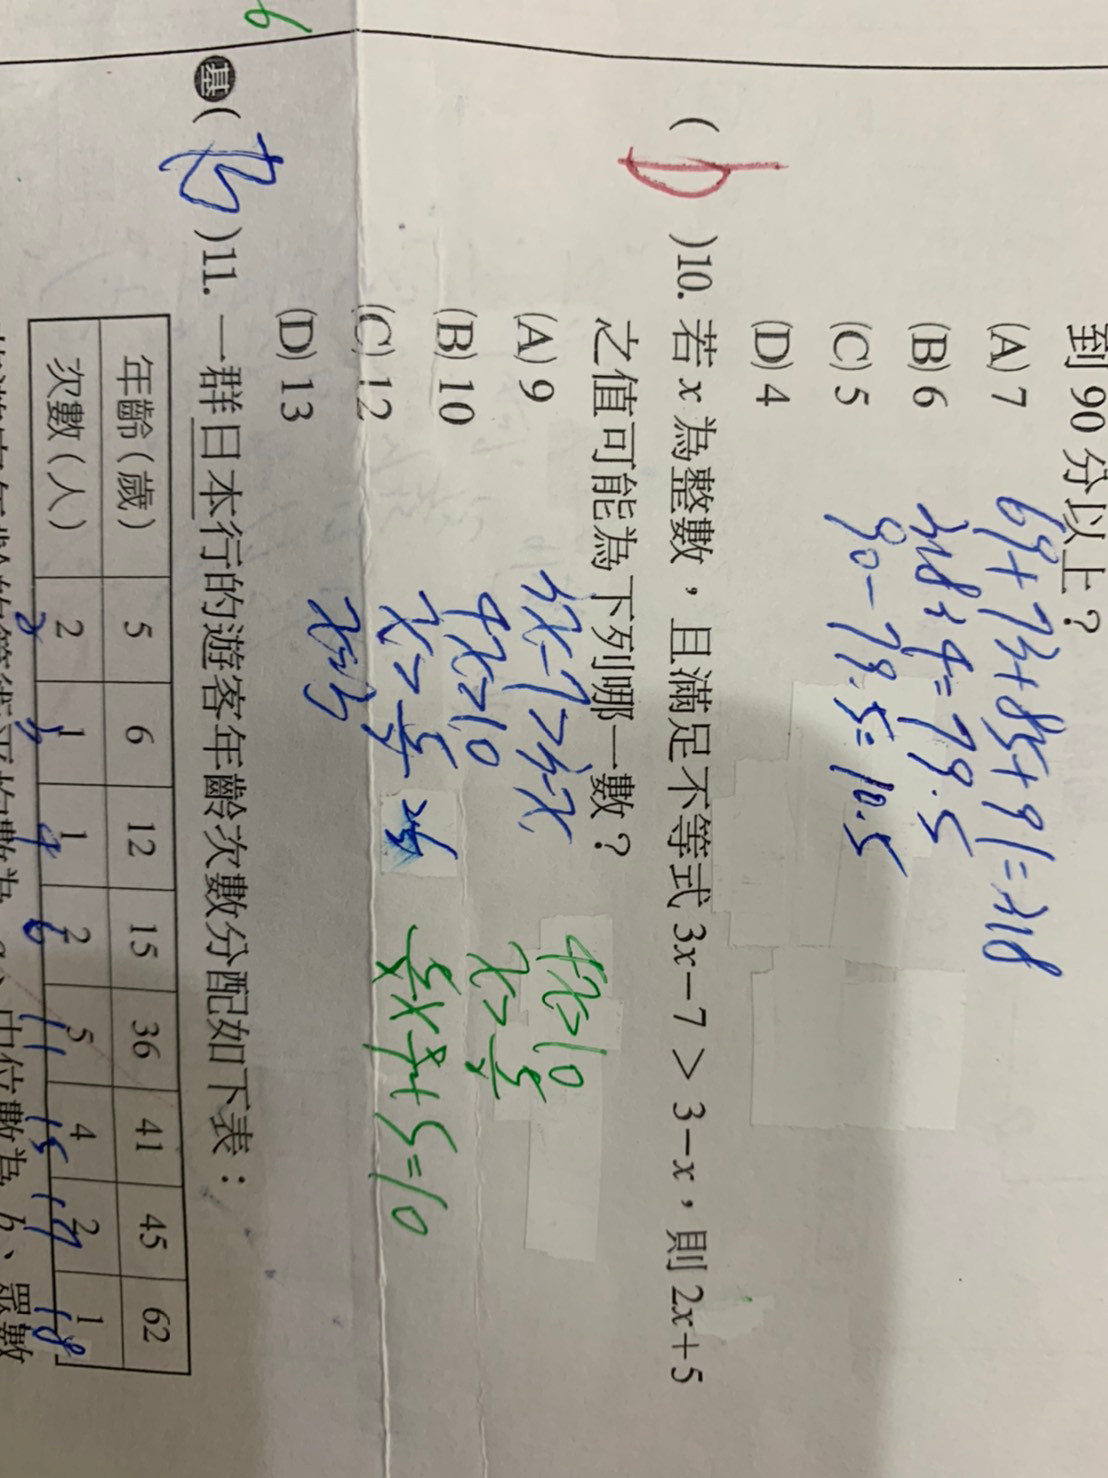 到 90 分以上？
(A) 7
(B) 6
(C) 5
(D) 4
69+73+85+91=318
318÷4=79.5
90-79.5=10.5
( D )10. 若 x 為整數，且滿足不等式 3x－7 > 3－x，則 2x+5
之值可能為下列哪一數？
(A) 9
(B) 10
(C) 12
(D) 13
3x-7>3-x
4x>10
x>5/2
x=3
4x>10
x>5/2
5/2×2+5=10
6
基( B )11. 一群日本行的遊客年齡次數分配如下表：
年齡(歲) 5 6 12 15 36 41 45 62
次數(人) 2 1 1 2 5 4 2 1
2 3 4 6 11 15 17 18
中位數為 b、眾數